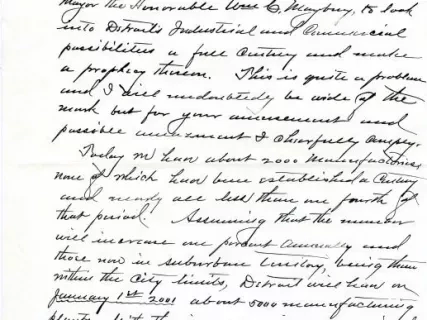 Mayor the Honorable Wm C. Maybury, to look
into Detroit's Industrial and Commercial
possibilities a full Century and make
a prophecy thereon. This is quite a problem
and I will undoubtedly be wide of the
mark but for your amusement and
possible amazement I cheerfully comply.
Today we have about 2000 Manufactories
none of which have been established a Century
and nearly all less than one fourth of
that period. Assuming that the number
will increase one percent annually and
those now in suburban territory, being then
within the City limits, Detroit will have on
January 1st 2001 about 5000 manufacturing
plants